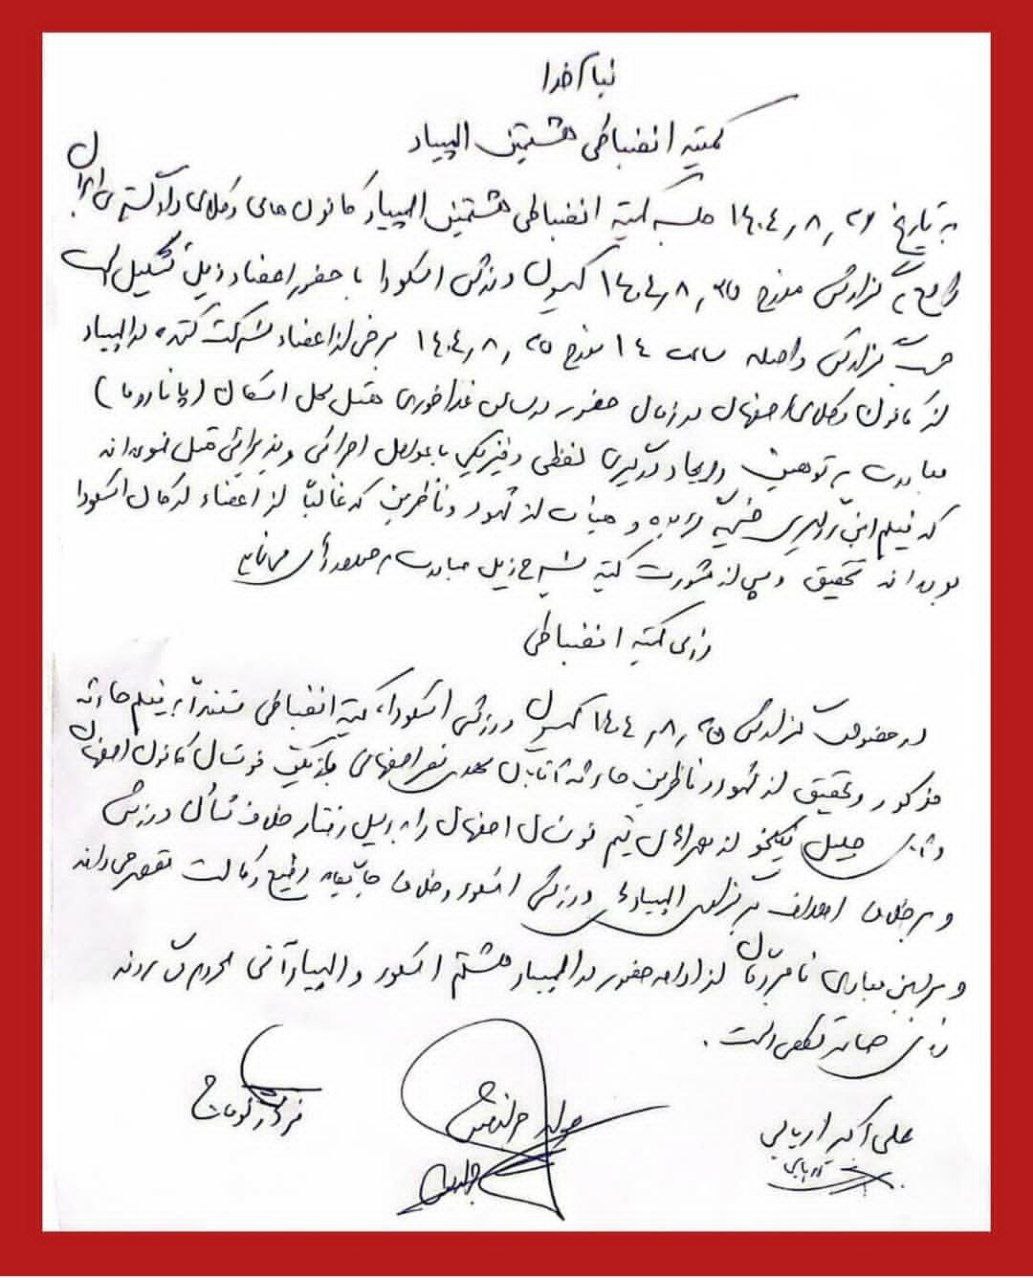 بنام خدا
کمیته انضباطی هشتمین المپیاد
به تاریخ ۱۴۰۴٫۸٫۲۶ جلسه کمیته انضباطی هشتمین المپیاد کانون های وکلای دادگستری ایران
راجع به گزارش مورخ ۱۴۰۴٫۸٫۲۵ کمیسیون ورزش اسکودا با حضور اعضاء ذیل تشکیل است
حسب گزارش واصله ساعت ۱۴ مورخ ۱۴۰۴٫۸٫۲۵ برخی از اعضاء شرکت کننده در المپیاد
از کانون وکلای اصفهان در زمان حضور در سالن غذاخوری هتل محل اسکان (پاناروما)
مبادرت به توهین و ایجاد درگیری لفظی و فیزیکی با عوامل اجرائی و پذیرائی هتل نموده اند
که فیلم این درگیری ضمیمه بوده و هیأت از شهود و ناظرین که غالباً از اعضاء ارکان اسکودا
بوده اند تحقیق و پس از مشورت کمیته بشرح ذیل مبادرت به صدور رأی می نماید
رأی کمیته انضباطی
در خصوص گزارش ۱۴۰۴٫۸٫۲۵ کمیسیون ورزش اسکودا، کمیته انضباطی مستنداً به فیلم حادثه
مذکور و تحقیق از شهود و ناظرین حادثه آقایان مهدی نصر اصفهانی بازیکن فوتسال کانون اصفهان
و آقای جلیل نیکخو از همراهان تیم فوتسال اصفهان را به دلیل رفتار خلاف شأن ورزش
و برخلاف اهداف برگزاری المپیادهای ورزشی اسکودا و خلاف جایگاه رفیع وکالت مقصر می داند
و بر این مبنا نامبردگان از ادامه حضور در المپیاد هشتم اسکودا و المپیاد آتی محروم می گردند
رأی صادره قطعی است.
علی اکبر اربابی
اربابی